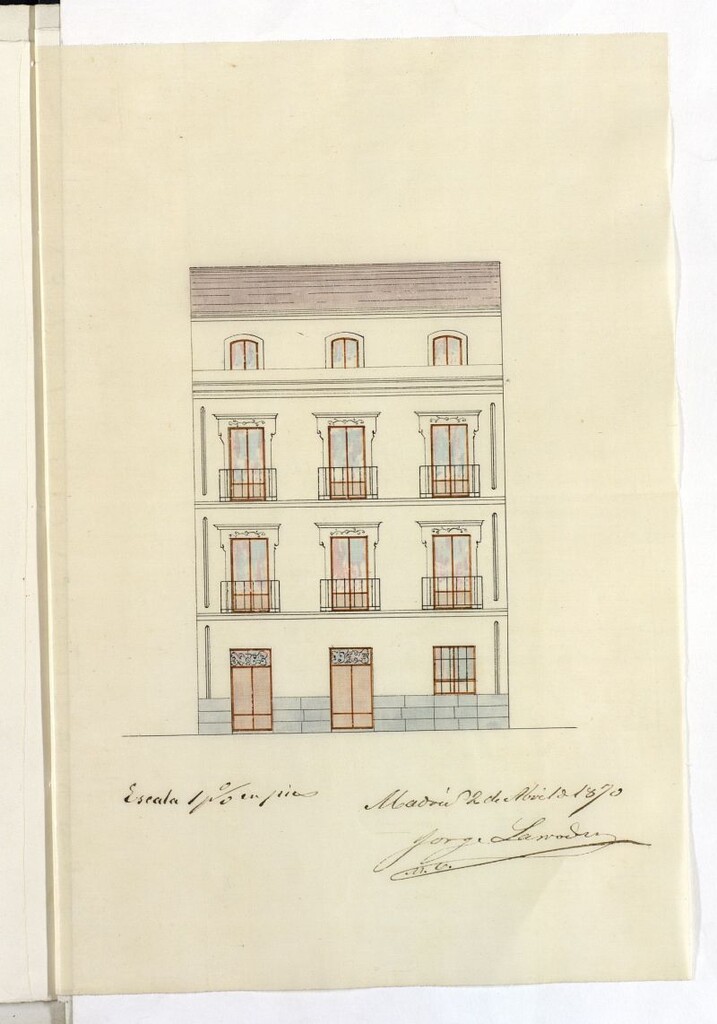 Escala 1 p% en pies
Madrid 2 de Abril de 1870
Jorge
M. O.